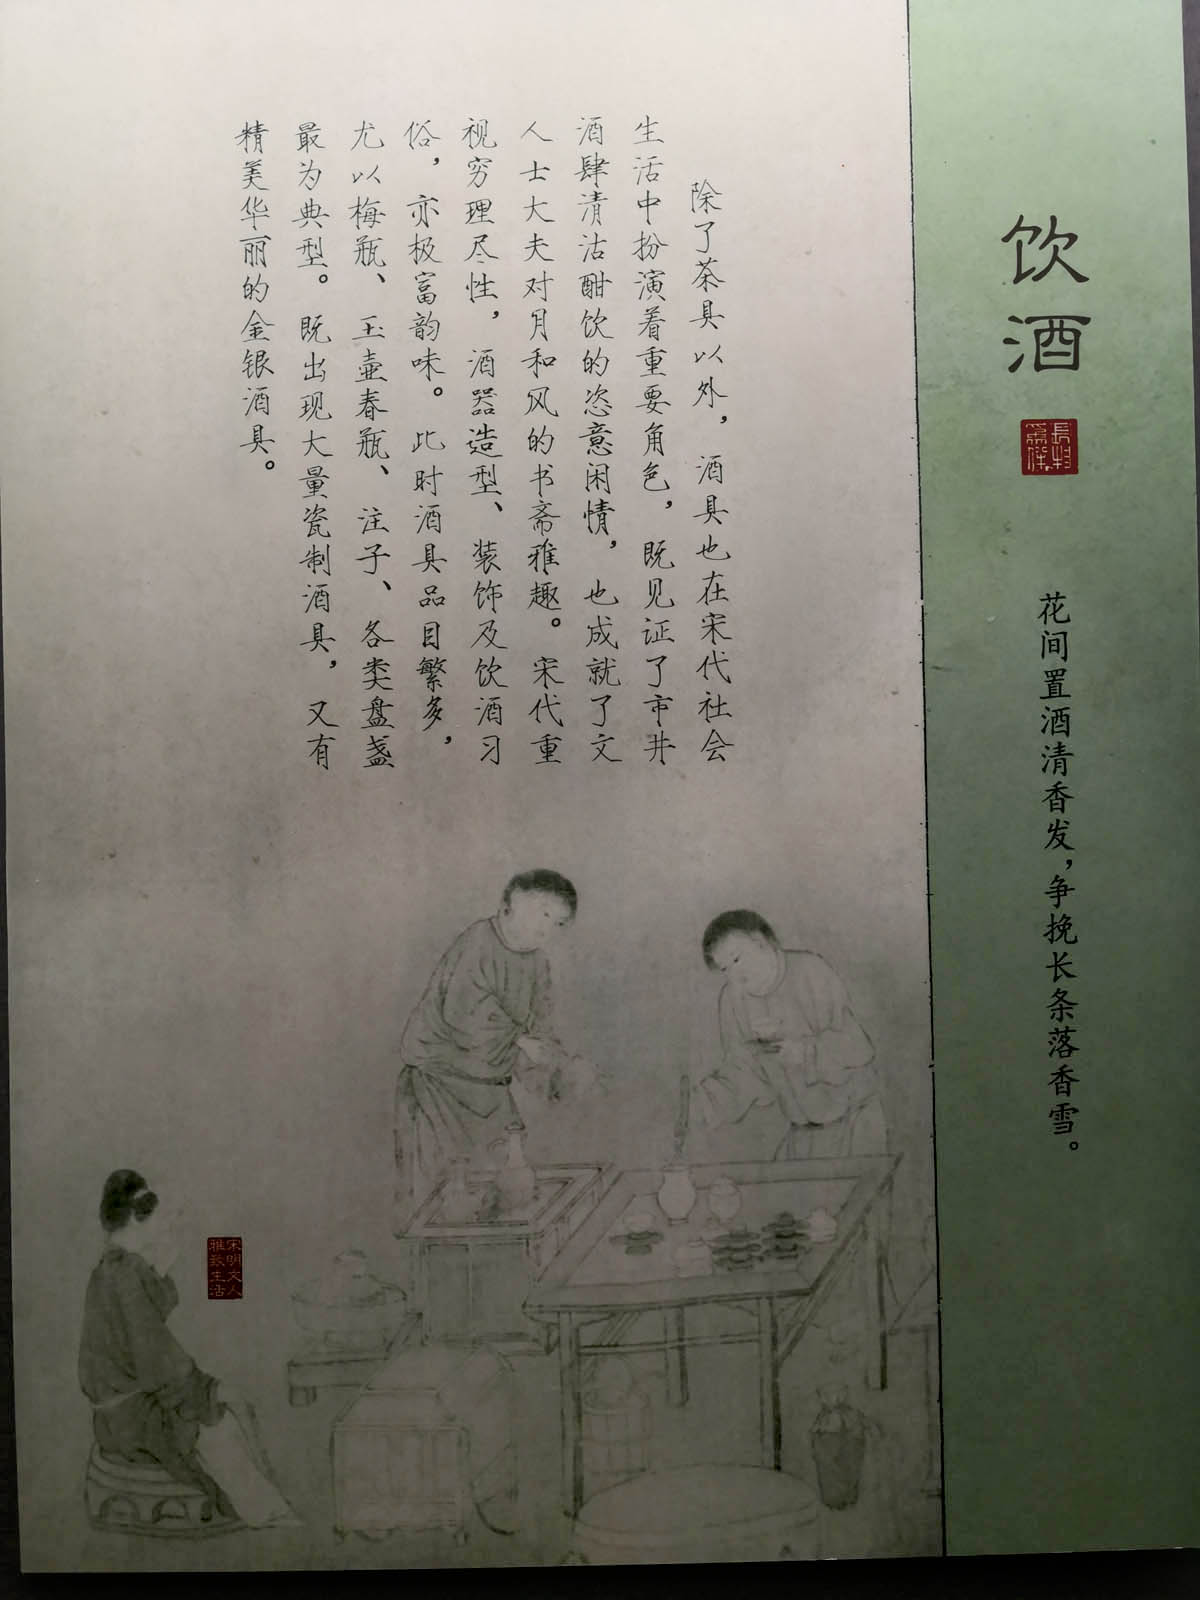 饮酒
花间置酒清香发，争挽长条落香雪。
除了茶具以外，酒具也在宋代社会
生活中扮演着重要角色，既见证了市井
酒肆清沽酣饮的恣意闲情，也成就了文
人士大夫对月和风的书斋雅趣。宋代重
视穷理尽性，酒器造型、装饰及饮酒习
俗，亦极富韵味。此时酒具品目繁多，
尤以梅瓶、玉壶春瓶、注子、各类盘盏
最为典型。既出现大量瓷制酒具，又有
精美华丽的金银酒具。
宋明文人
雅致生活